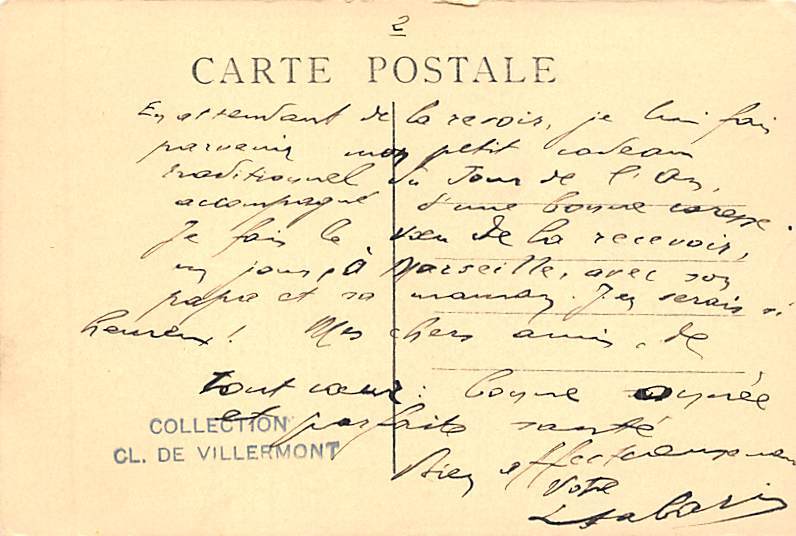 2
CARTE POSTALE
En attendant de la revoir, je lui fais
parvenir mon petit cadeau
traditionnel du Jour de l'An,
accompagné d'une bonne caresse.
Je fais le vœu de la recevoir,
un jour, à Marseille, avec son
papa et sa maman. J'en serais si
heureux! Mes chers amis, de
tout cœur : bonne année
et parfaite santé
COLLECTION
CL. DE VILLERMONT
Bien affectueusement
Votre